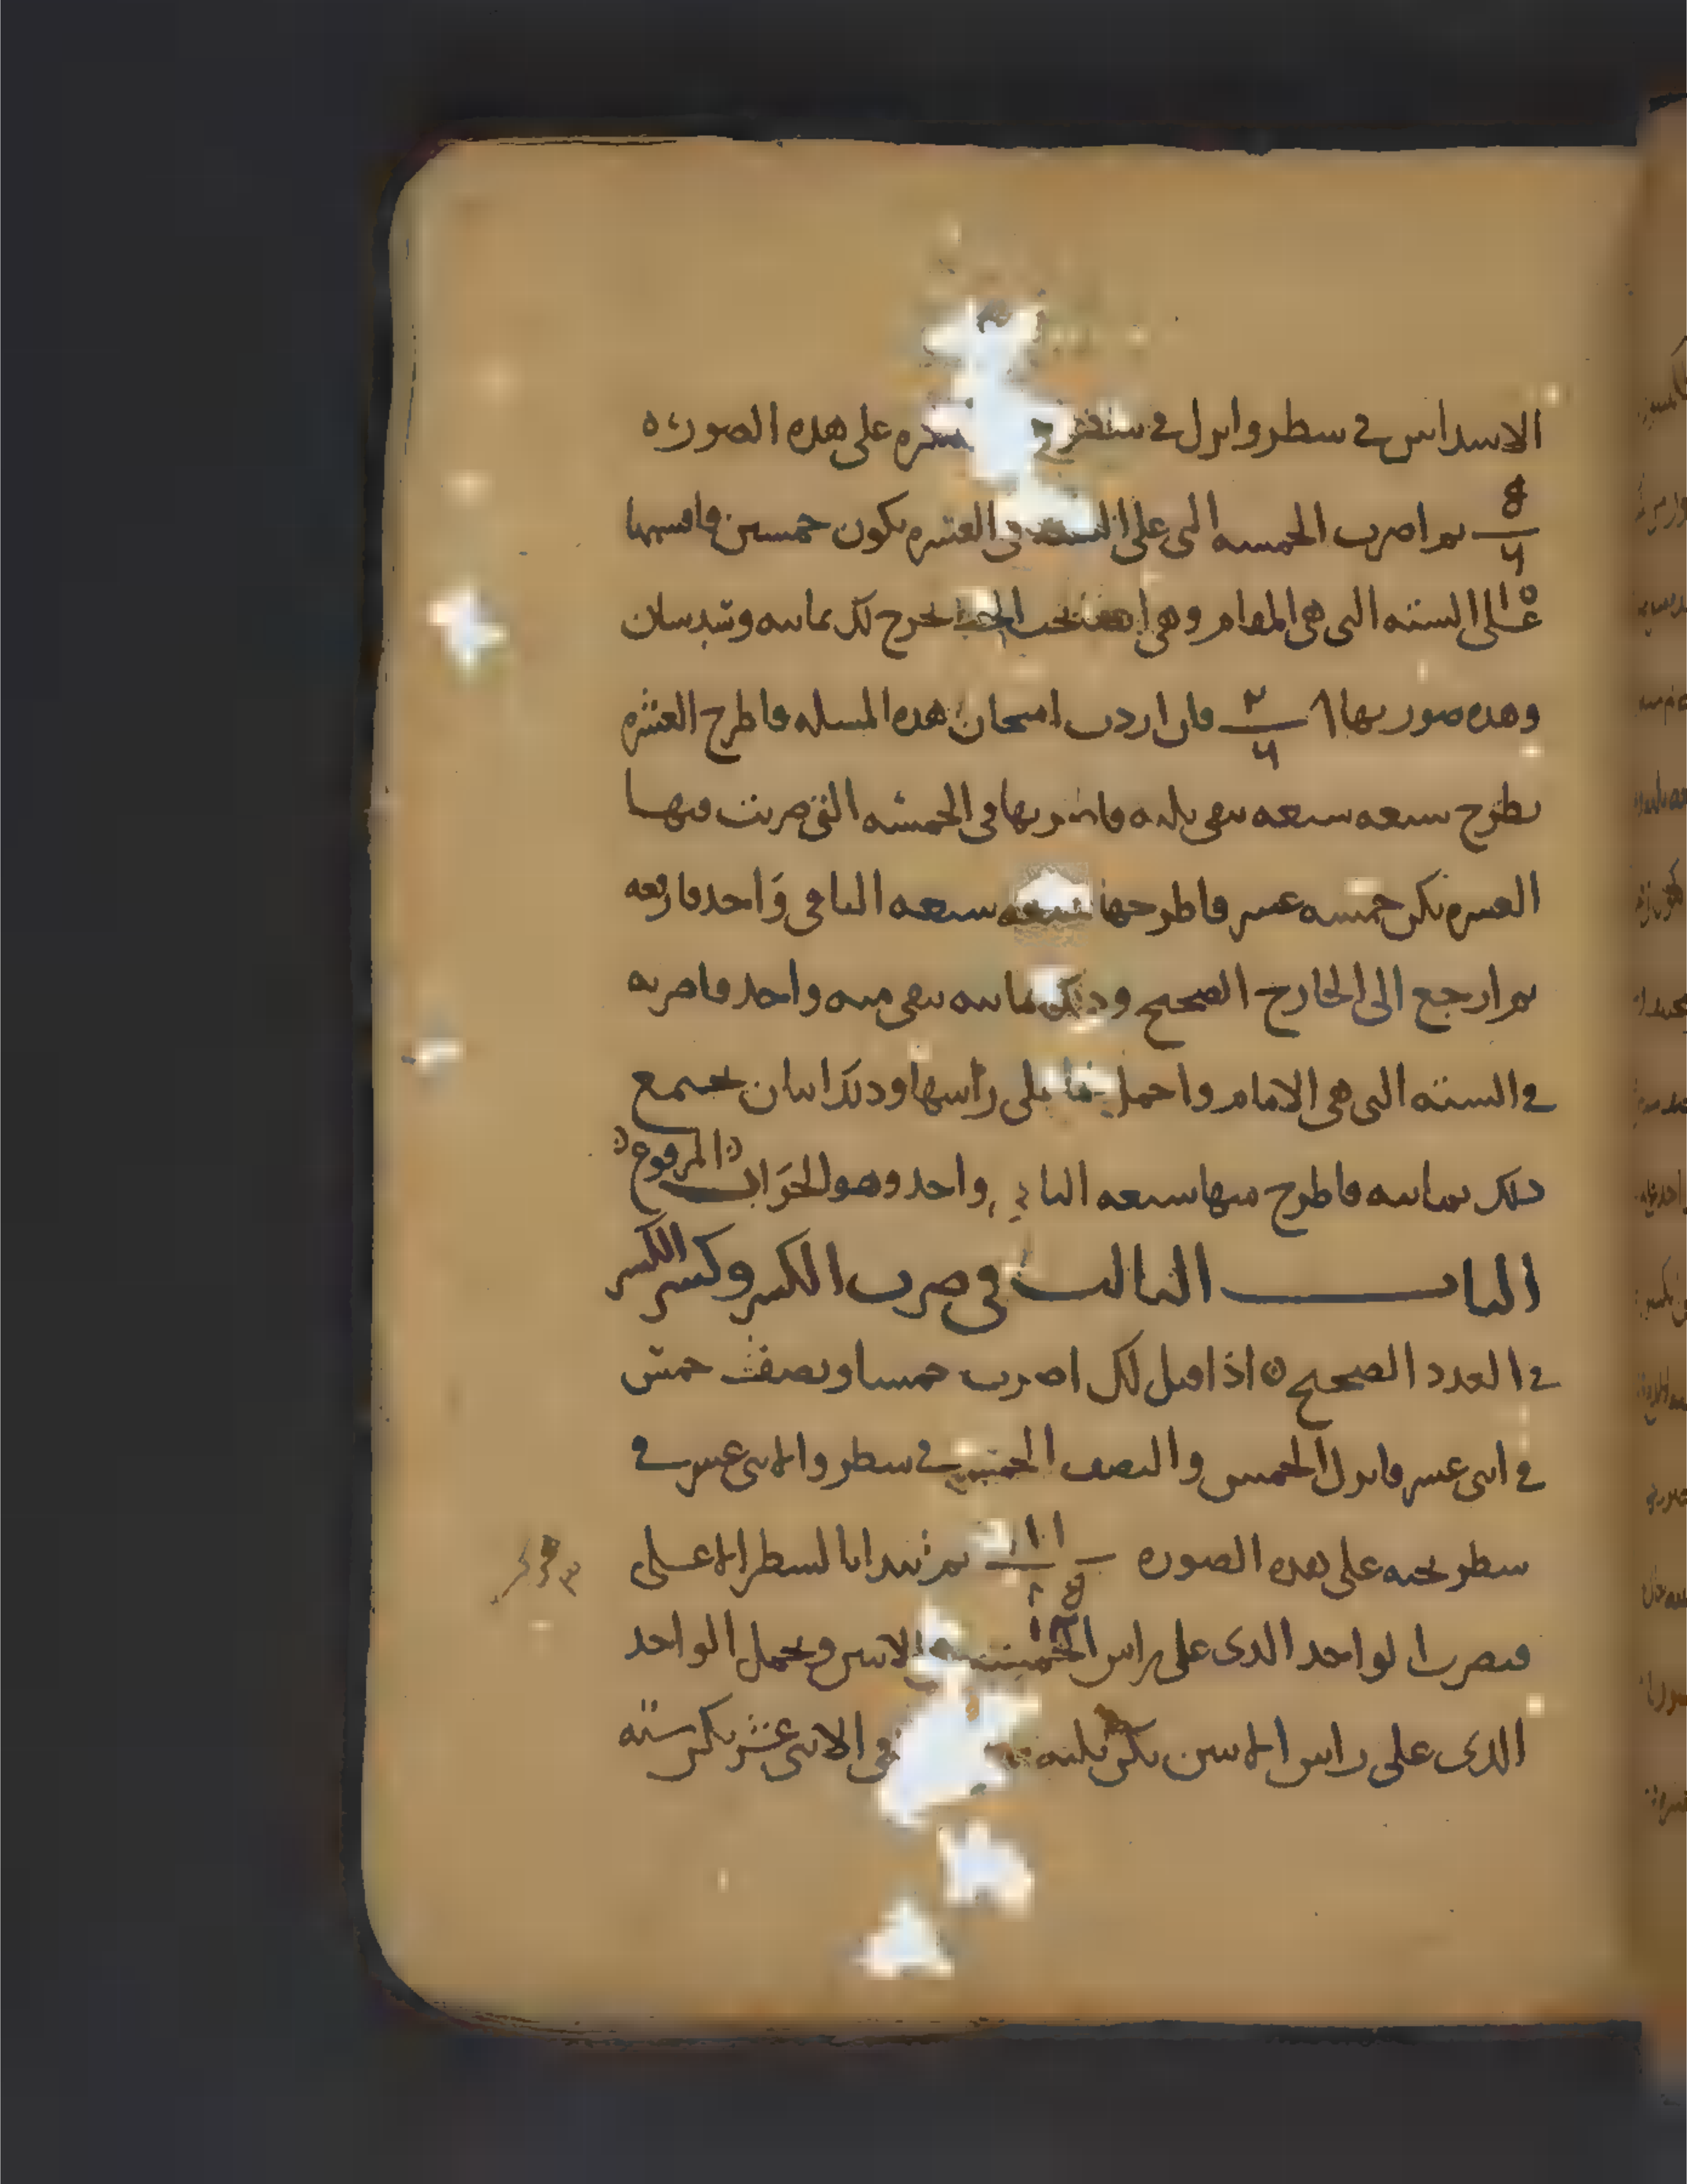 الاسداس في سطر وانزل في سطر عشره على هذه الصوره
ثم اضرب الخمسه التي على السته في العشره يكون خمسين فاقسمها
على السته التي هي المقام وهي تحت الخط يخرج لك ثمانيه وسدسان
وهذه صورتها ٨ ٢ ٦ فان اردت امتحان هذه المسله فاطرح العشره
بطرح سبعه سبعه يبقى ثلثه فاضربها في الخمسه التي ضربت فيها
العشره يكن خمسه عشر فاطرحها سبعه سبعه الباقي واحد فارفعه
ثم ارجع الى الخارج الصحيح وذلك ثمانيه يبقى منه واحد فاضربه
في السته التي هي الامام واحمل ما على راسها وذلك اثنان يجتمع
ذلك ثمانيه فاطرح منها سبعه الباقي واحد وهو الجواب المرفوع
الباب الثالث في ضرب الكسر وكسر الكسر
في العدد الصحيح اذا قيل لك اضرب خمسا ونصف خمس
في اثنى عشر فانزل الخمس والنصف الخمس في سطر والاثنى عشر في
سطر تحته على هذه الصوره ثم تبدا بالسطر الاعلى
فتضرب الواحد الذى على راس الخمسه في الاثنين وتحمل الواحد
الذى على راس الاثنين يكن ثلثه في الاثنى عشر يكن سته